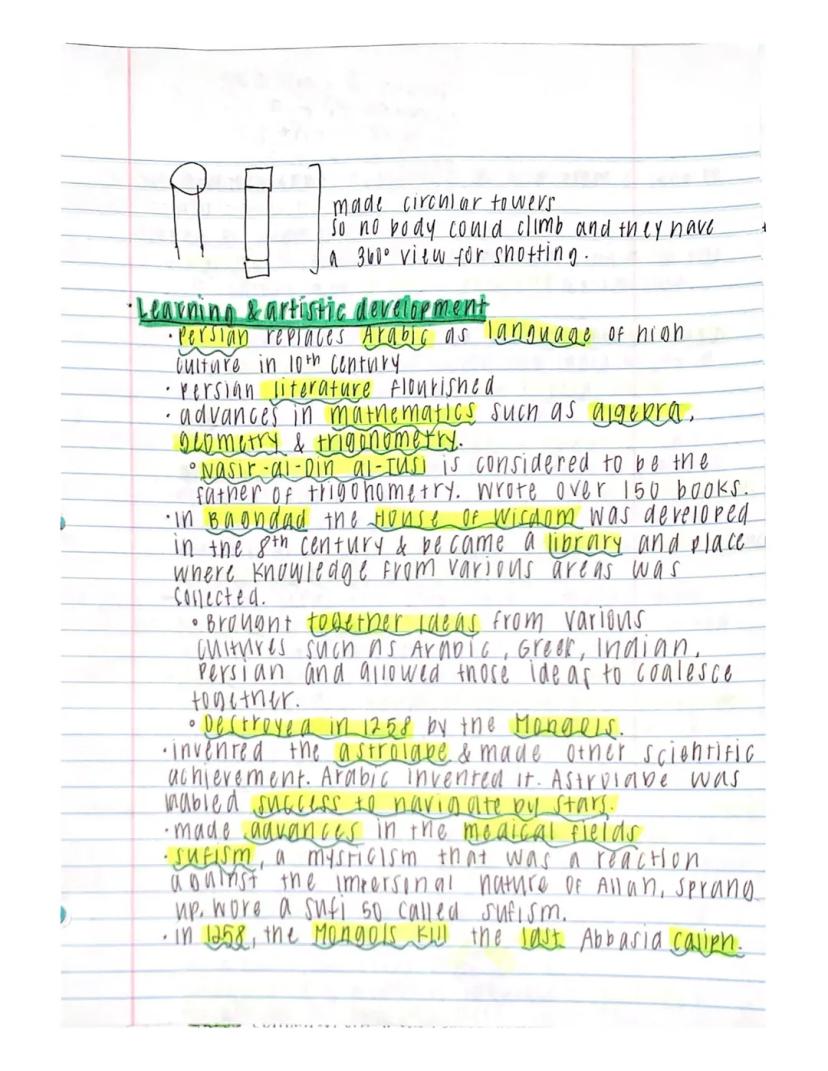 made circular towers
so no body could climb and they have
a 360° view for shotting.
·Learning & artistic development
·Persian replaces Arabic as language of high
culture in 10th century
·Persian literature flourished
·advances in mathematics such as algebra,
geometry & trigonometry.
°Nasir-al-Din al-Tusi is considered to be the
father of trigonometry. Wrote over 150 books.
·in Baghdad the House of Wisdom was developed
in the 8th century & became a library and place
where knowledge from various areas was
collected.
°Brought together ideas from various
cultures such as Arabic, Greek, Indian,
Persian and allowed those ideas to coalesce
together.
°Destroyed in 1258 by the Mongols.
·invented the astrolabe & made other scientific
achievement. Arabic invented it. Astrolabe was
nabled success to navigate by stars.
·made advances in the medical fields
·sufism, a mysticism that was a reaction
against the impersonal nature of Allah, sprang
up. wore a sufi so called sufism.
·in 1258, the Mongols kill the last Abbasid caliph.